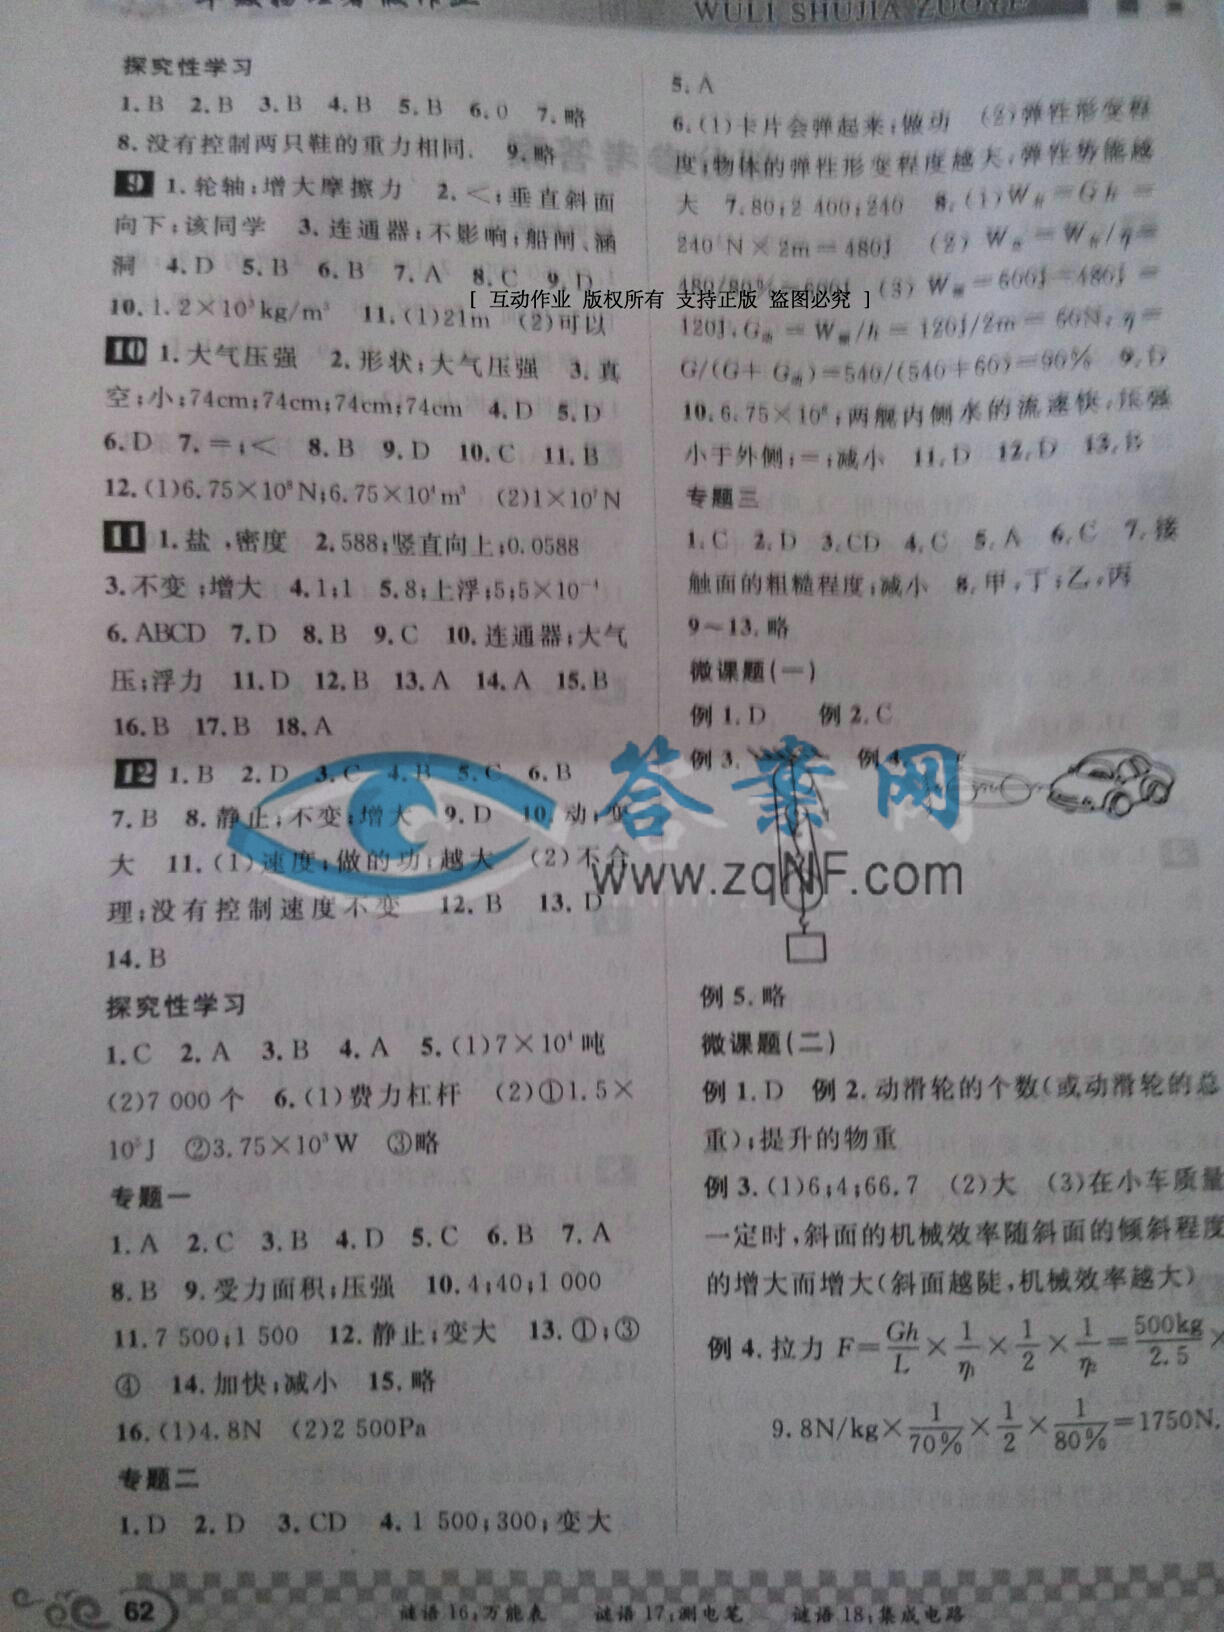 WULI SHUJIA ZUOYE
探究性学习
1.B 2.B 3.B 4.B 5.B 6.0 7.略
8.没有控制两只鞋的重力相同. 9.略
9 1.轮轴;增大摩擦力 2.<;垂直斜面
向下;该同学 3.连通器;不影响;船闸、涵
洞 4.D 5.B 6.B 7.A 8.C 9.D
10.1.2×10³kg/m³ 11.(1)21m (2)可以
10 1.大气压强 2.形状;大气压强 3.真
空;小;74cm;74cm;74cm;74cm 4.D 5.D
6.D 7.=;< 8.B 9.D 10.C 11.B
12.(1)6.75×10⁸N;6.75×10⁴m³ (2)1×10⁷N
11 1.盐,密度 2.588;竖直向上;0.0588
3.不变;增大 4.1:1 5.8;上浮;5;5×10⁻⁴
6.ABCD 7.D 8.B 9.C 10.连通器;大气
压;浮力 11.D 12.B 13.A 14.A 15.B
16.B 17.B 18.A
12 1.B 2.D 3.C 4.B 5.C 6.B
7.B 8.静止;不变;增大 9.D 10.动;变
大 11.(1)速度;做的功;越大 (2)不合
理;没有控制速度不变 12.B 13.D
14.B
探究性学习
1.C 2.A 3.B 4.A 5.(1)7×10⁴吨
(2)7 000个 6.(1)费力杠杆 (2)①1.5×
10⁵J ②3.75×10³W ③略
专题一
1.A 2.C 3.B 4.D 5.C 6.B 7.A
8.B 9.受力面积;压强 10.4;40;1 000
11.7 500;1 500 12.静止;变大 13.①;③
④ 14.加快;减小 15.略
16.(1)4.8N (2)2 500Pa
专题二
1.D 2.D 3.CD 4.1 500;300;变大
5.A
6.(1)卡片会弹起来;做功 (2)弹性形变程
度;物体的弹性形变程度越大,弹性势能越
大 7.80;2 400;240 8.(1)W有=Gh=
240N×2m=480J (2)W总=W有/η=
480/80%=600J (3)W额=600J-480J=
120J,G动=W额/h=120J/2m=60N;η=
G/(G+G动)=540/(540+60)=90% 9.D
10.6.75×10⁸;两舰内侧水的流速快,压强
小于外侧;=;减小 11.D 12.D 13.B
专题三
1.C 2.D 3.CD 4.C 5.A 6.C 7.接
触面的粗糙程度;减小 8.甲,丁;乙,丙
9~13.略
微课题(一)
例1.D 例2.C
例3. 例4.
例5.略
微课题(二)
例1.D 例2.动滑轮的个数(或动滑轮的总
重);提升的物重
例3.(1)6;4;66.7 (2)大 (3)在小车质量
一定时,斜面的机械效率随斜面的倾斜程度
的增大而增大(斜面越陡,机械效率越大)
例4.拉力 F=Gh/L×1/η₁×1/2×1/η₂=500kg/2.5×
9.8N/kg×1/70%×1/2×1/80%=1750N.
[ 互动作业 版权所有 支持正版 盗图必究 ]
答案网
www.zqNF.com
62 谜语16:万能表 谜语17:测电笔 谜语18:集成电路